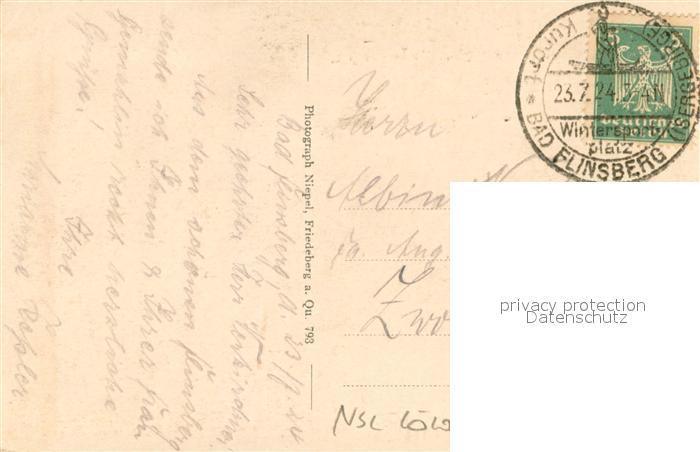 Bad Flinsberg, d. 23/7.24.
Sehr geehrter Herr
Aus dem schönen Flinsberg
sende ich Ihnen & Ihrer Frau
Gemahlin recht herzliche
Grüße!
Ihre
Photograph Niepel, Friedeberg a. Qu. 793
Herrn
Albin
Fa. Aug.
Zwö
NSL
Kurort * BAD FLINSBERG (ISERGEBIRGE)
23.7.24.
Wintersport-
platz
5
Deutsches
privacy protection
Datenschutz